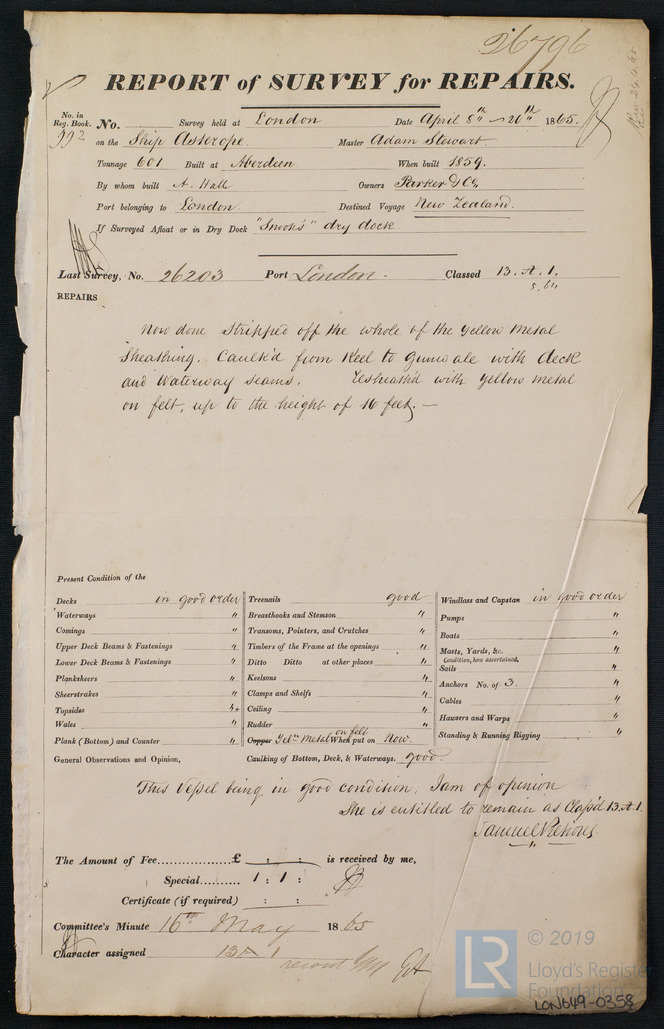 26796
REPORT of SURVEY for REPAIRS.
No. in Reg. Book. No. Survey held at London Date April 8th 20th 1865.
992 on the Ship Asterope Master Adam Stewart
Tonnage 601 Built at Aberdeen When built 1859.
By whom built A. Hall Owners Parker & Co.
Port belonging to London Destined Voyage New Zealand.
If Surveyed Afloat or in Dry Dock "Snook's" dry dock
Last Survey, No. 26203 Port London. Classed 13. A. 1.
5.64
REPAIRS
Now done stripped off the whole of the yellow metal
sheathing. Caulk'd from Keel to Gunwale with deck
and Waterway seams. Resheath'd with yellow metal
on felt, up to the height of 16 feet. —
Present Condition of the
Decks in good order Treenails good Windlass and Capstan in good order
Waterways " Breasthooks and Stemson " Pumps "
Comings " Transoms, Pointers, and Crutches " Boats "
Upper Deck Beams & Fastenings " Timbers of the Frame at the openings " Masts, Yards, &c. "
Condition, how ascertained,
Lower Deck Beams & Fastenings " Ditto Ditto at other places " Sails "
Planksheers " Keelsons " Anchors No. of 3. "
Sheerstrakes " Clamps and Shelfs " Cables "
Topsides " Ceiling " Hawsers and Warps "
Wales " Rudder " Standing & Running Rigging "
Plank (Bottom) and Counter " Copper Yel. Metal on felt When put on Now.
General Observations and Opinion, Caulking of Bottom, Deck, & Waterways. good.
This Vessel being in good condition, I am of opinion
She is entitled to remain as Class'd 13. A. 1.
The Amount of Fee............... £ : : is received by me,
Special.......... 1 : 1 :
Certificate (if required) : :
Committee's Minute 16th May 1865
Character assigned 13 A 1
© 2019
LR
Lloyd's Register
Foundation
LON649-0358